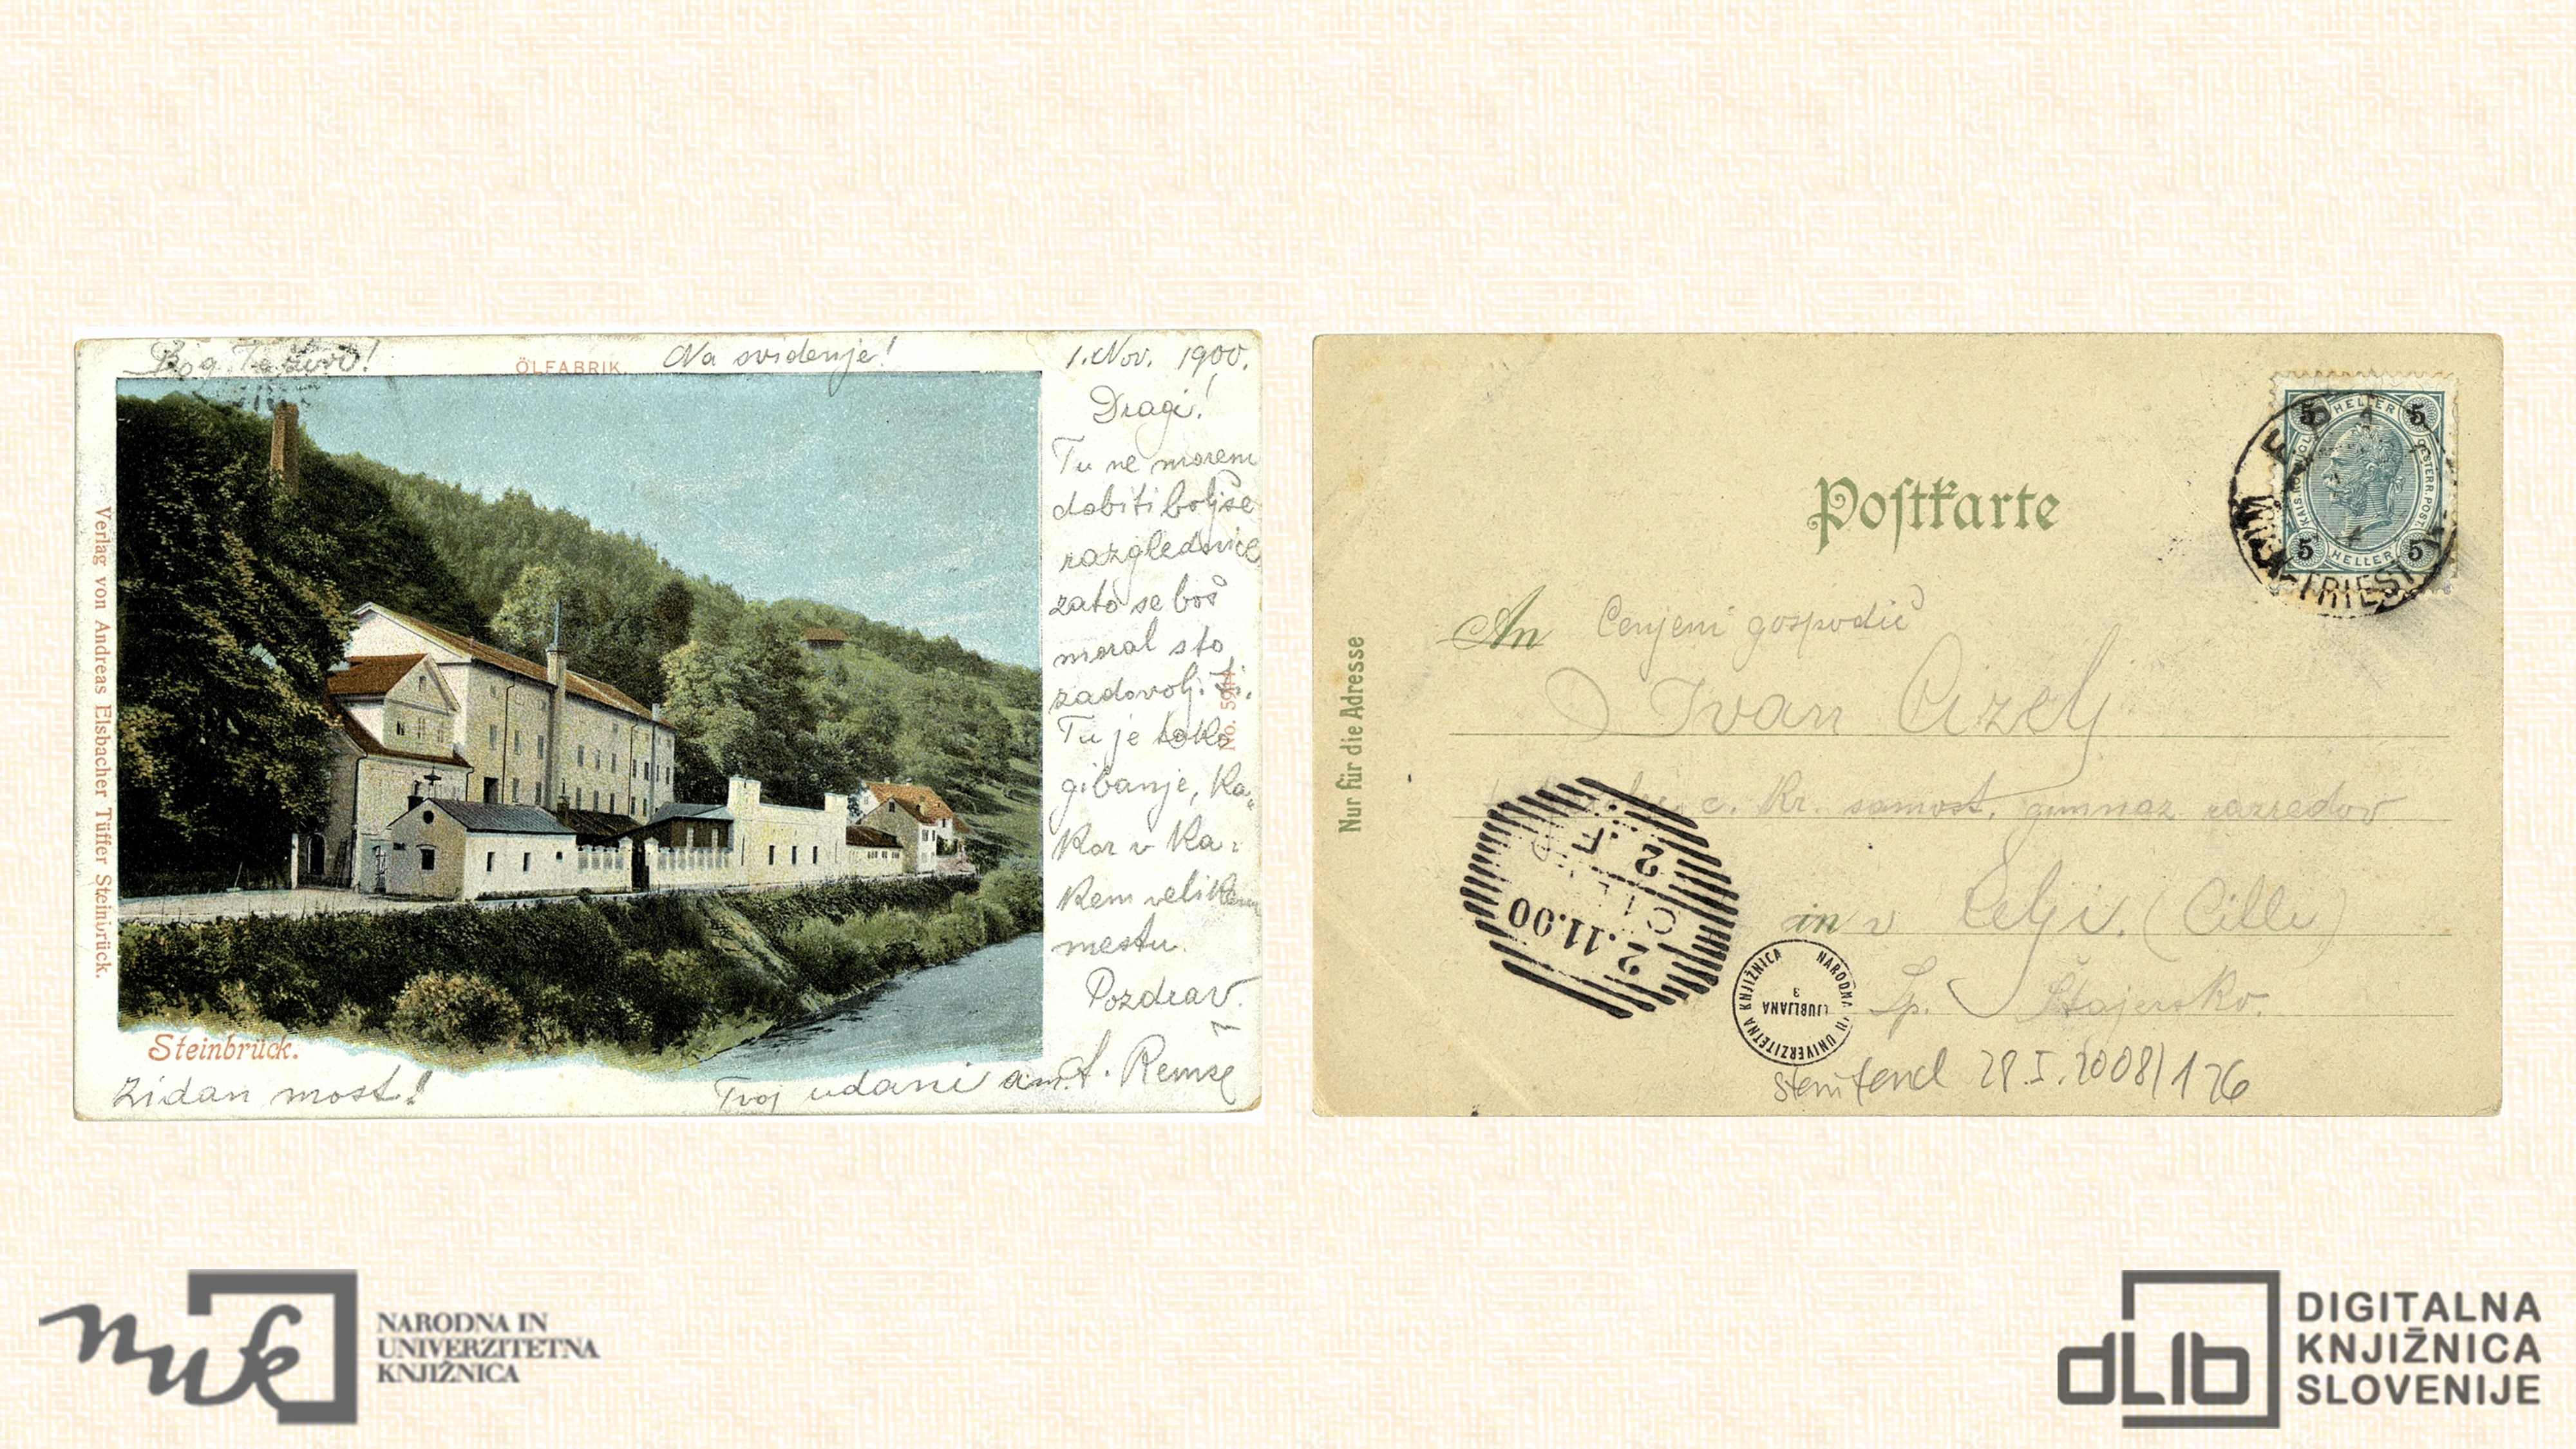 Bog Te živi!
ÖLFABRIK.
Na svidenje!
1. Nov. 1900.
Dragi!
Tu ne morem
dobiti boljše
razglednice
zato se boš
moral s to
zadovoljiti.
Tu je toko
gibanje, ka„
kor v ka„
kem velikem
mestu.
Pozdrav.
Tvoj udani am. A. Remše
No. 5914
Verlag von Andreas Elsbacher Tüffer Steinbrück.
Steinbrück.
Zidan most!
Postkarte
Nur für die Adresse
An Cenjeni gospodič
Ivan Cizelj
c. kr. samost. gimnaz razredov
in v Celji. (Cilli)
Sp. Štajersko.
5 HELLER 5
5 HELLER 5
OESTERR. POST.
TRIEST
2.11.00
2.F
NARODNA IN UNIVERZITETNA KNJIŽNICA
LJUBLJANA
3
28.I.2008/126
nuk
NARODNA IN
UNIVERZITETNA
KNJIŽNICA
dLib
DIGITALNA
KNJIŽNICA
SLOVENIJE